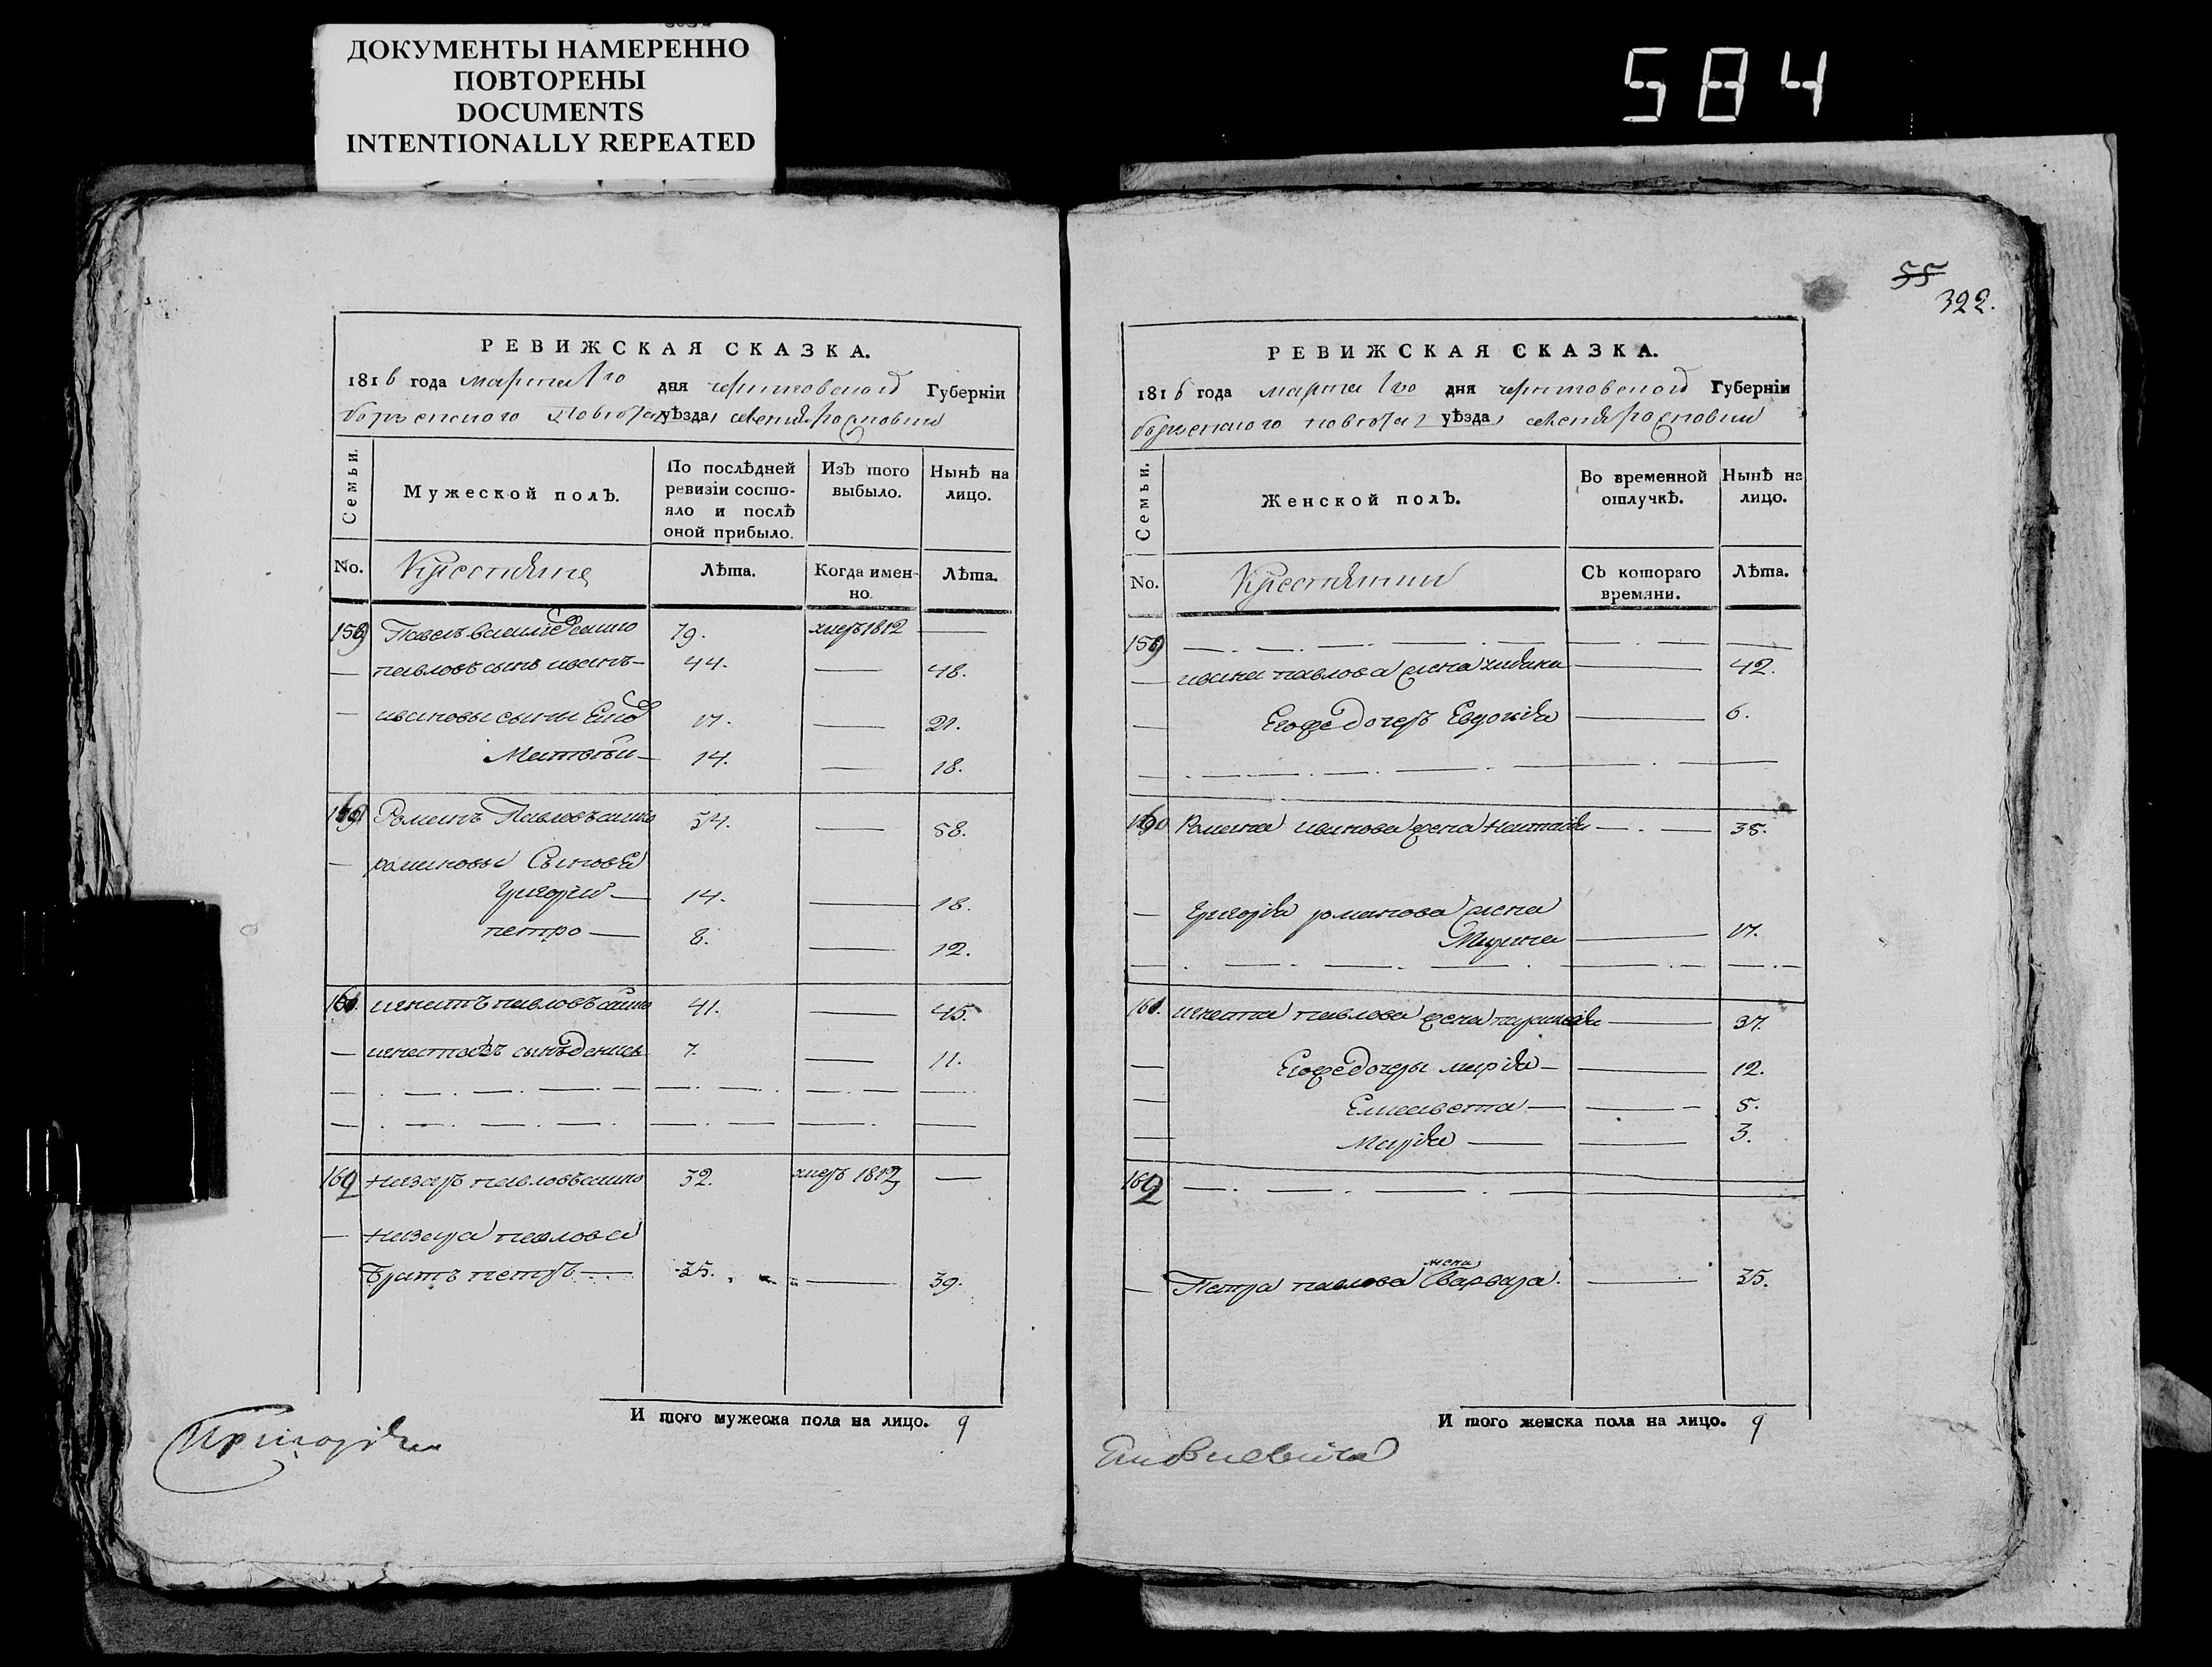 ДОКУМЕНТЫ НАМЕРЕННО
ПОВТОРЕНЫ
DOCUMENTS
INTENTIONALLY REPEATED
584
РЕВИЖСКАЯ СКАЗКА.
1816 года марта 1го дня черниговской Губерніи
борзенского повѣта уѣзда,
Семьи.
Мужеской полъ.
По послѣдней ревизіи состо-яло и послѣ оной прибыло.
Изъ того выбыло.
Нынѣ на лицо.
No. Крестьяне Лѣта. Когда имен-но. Лѣта.
159 Павелъ 79. умеръ 1812 —
— павловъ сынъ иванъ — 44. — 48.
— ивановы сыны 17. — 21.
Матвѣй — 14. — 18.
Романъ Павловъ 54. — 58.
— романовы Сыновья
Григорій — 14. — 18.
петро — 8. — 12.
161. игнатъ павловъ 41. — 45.
— игнатовъ сынъ денисъ 7. — 11.
162 назаръ павловъ 32. умеръ 1813 —
— назара павлова
братъ петръ — 35. — 39.
И того мужеска пола на лицо. 9
55
322.
РЕВИЖСКАЯ СКАЗКА.
1816 года марта 1го дня черниговской Губерніи
борзенского повѣта уѣзда,
Семьи.
Женской полъ.
Во временной отлучкѣ.
Нынѣ на лицо.
No. Крестьянки Съ котораго времяни. Лѣта.
159
— ивана павлова жена — 42.
— Егоже дочерь Евдокія — 6.
160 Романа жена Наталія — 38.
— Григорія романова жена
Марина — 17.
161. игната павлова жена — 37.
— Егоже дочеры марія — — 12.
— Елисавета — — 5.
— Марія — — 3.
162
— Петра павлова жена Варвара. — 35.
И того женска пола на лицо. 9